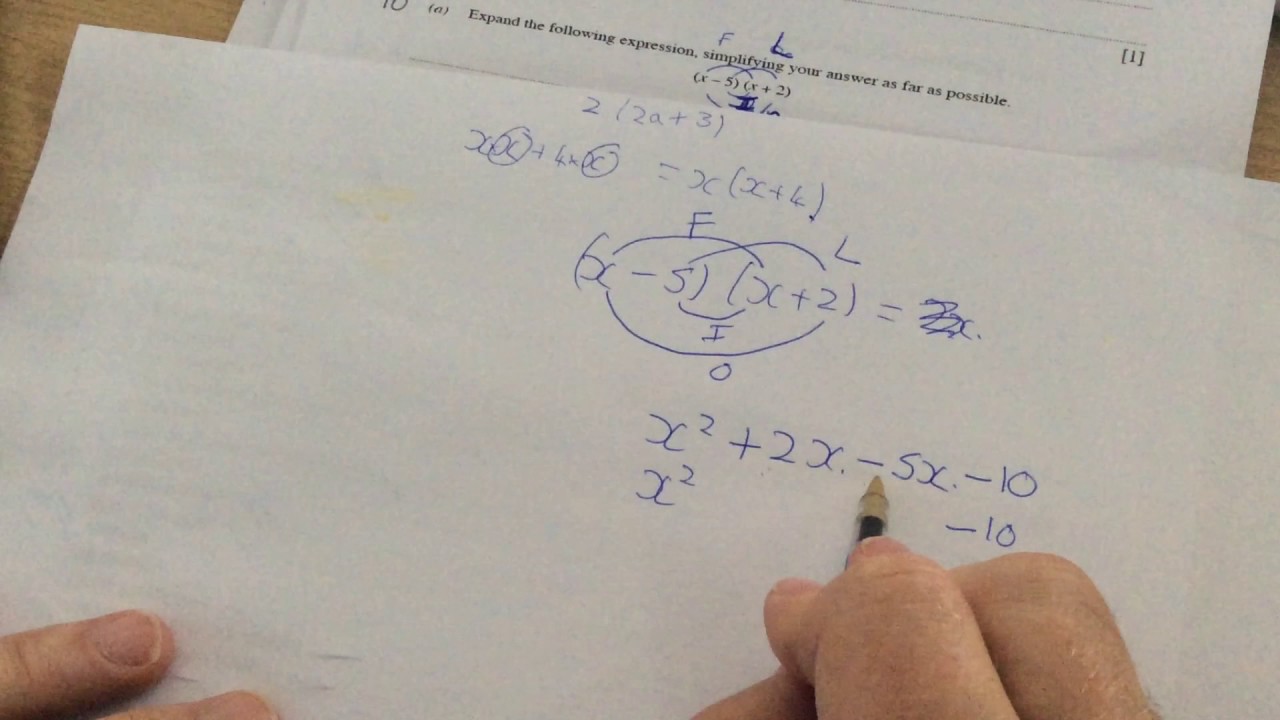 10 (a) Expand the following expression, simplifying your answer as far as possible.
[1]
F L
(x − 5) (x + 2)
2 (2a + 3)
x x + 4 × x = x (x + 4)
F L
(x − 5) (x + 2) =
I
O
x² + 2x − 5x − 10
x² − 10